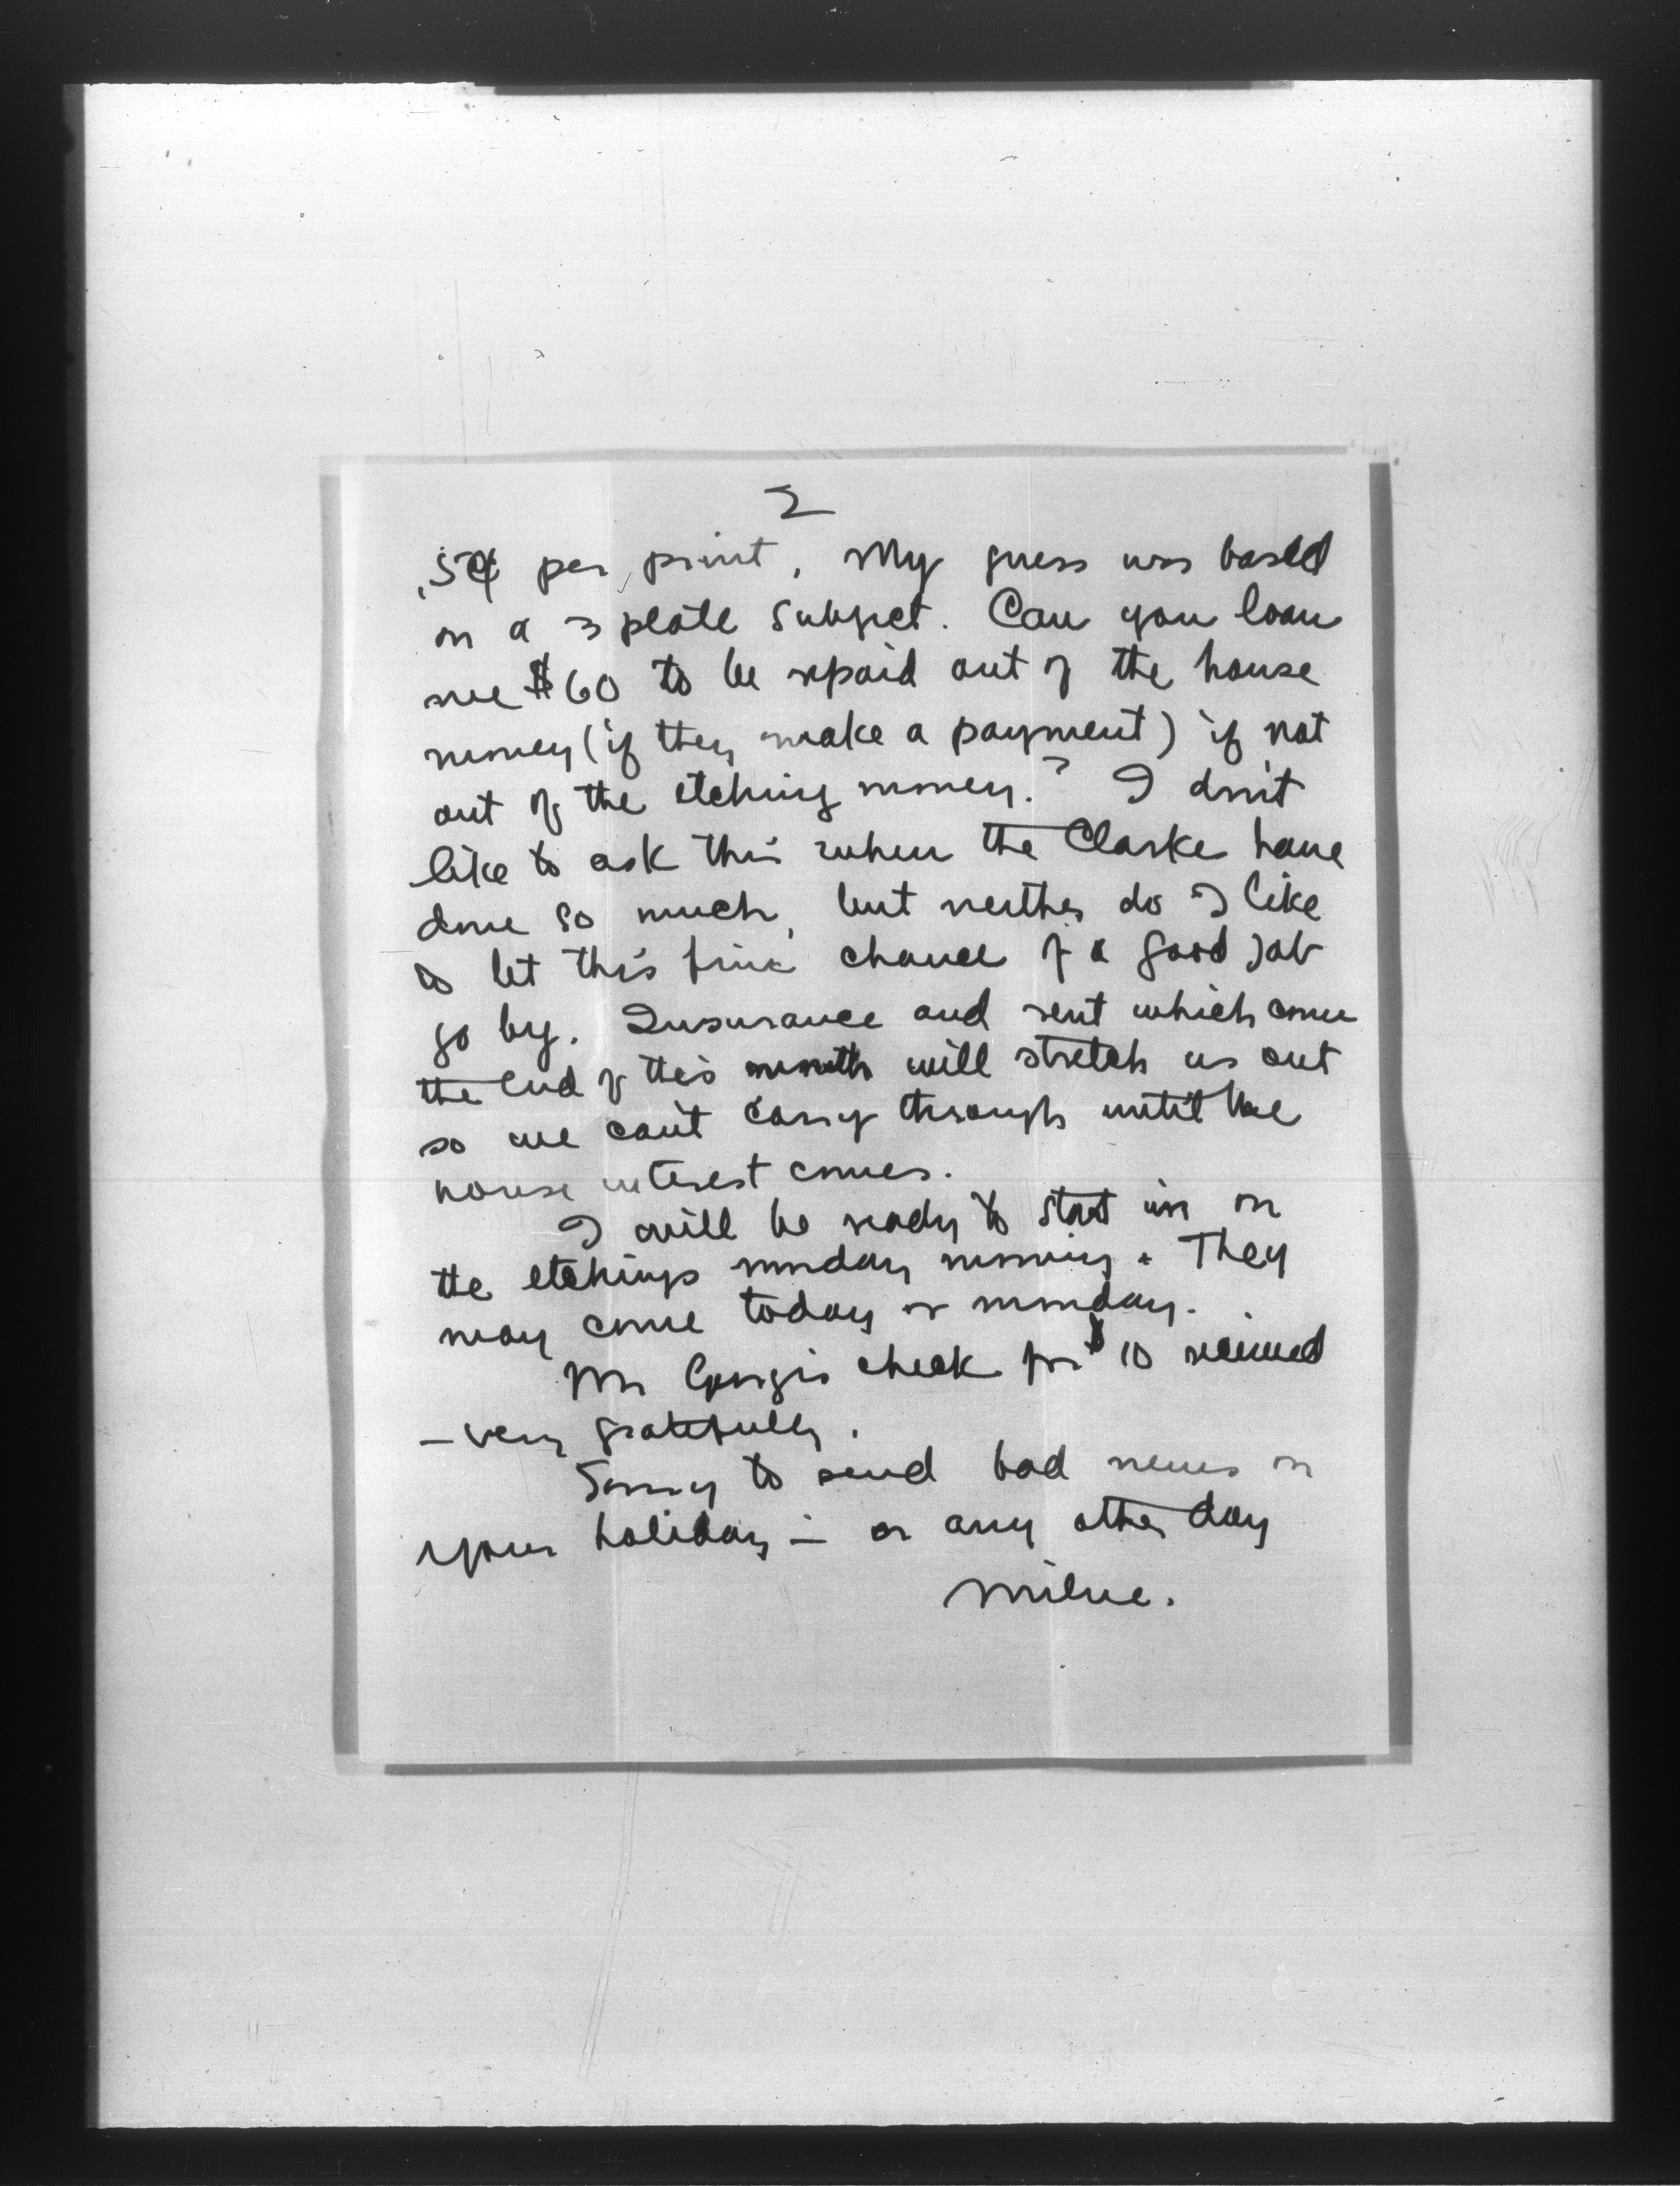 2
.5¢ per print. My guess was based
on a 3 plate subject. Can you loan
me $60 to be repaid out of the house
money (if they make a payment) if not
out of the etching money? I don't
like to ask this when the Clarke have
done so much, but neither do I like
to let this fine chance of a good job
go by. Insurance and rent which come
the end of this month will stretch us out
so we can't carry through until the
house interest comes.
I will be ready to start in on
the etchings monday morning. They
may come today or monday.
Mr check for $10 received
– very gratefully.
Sorry to send bad news on
your holiday – or any other day
Milne.